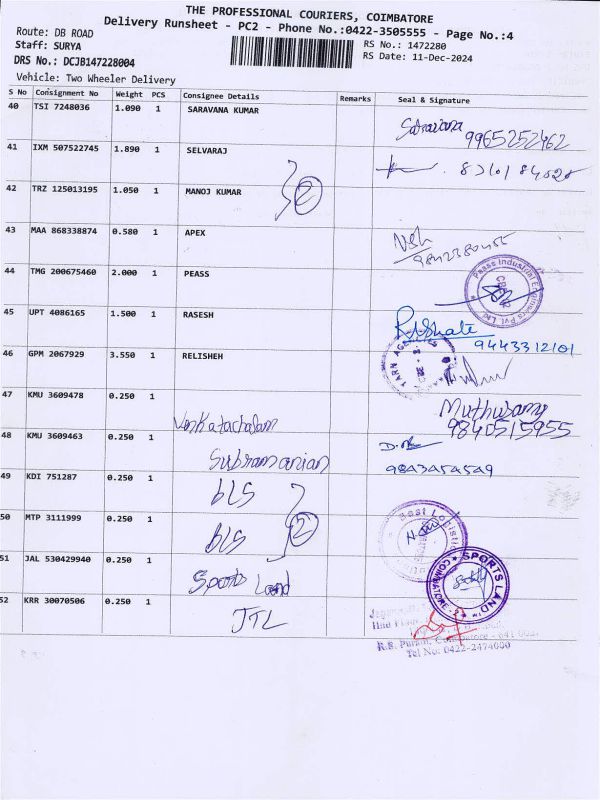 THE PROFESSIONAL COURIERS, COIMBATORE
Delivery Runsheet - PC2 - Phone No.:0422-3505555 - Page No.:4
Route: DB ROAD
Staff: SURYA
DRS No.: DCJB147228004
Vehicle: Two Wheeler Delivery
RS No.: 1472280
RS Date: 11-Dec-2024
S No Consignment No Weight PCS Consignee Details Remarks Seal & Signature
40 TSI 7248036 1.090 1 SARAVANA KUMAR
9965252462
41 IXM 507522745 1.890 1 SELVARAJ
42 TRZ 125013195 1.050 1 MANOJ KUMAR
2
43 MAA 868338874 0.580 1 APEX
44 TMG 200675460 2.000 1 PEASS
Peass Industrial Engineers Pvt. Ltd.
45 UPT 4086165 1.500 1 RASESH
9443312101
46 GPM 2067929 3.550 1 RELISHEH
YARN AGE
47 KMU 3609478 0.250 1 Venkatachalam
Muthusamy
9840515955
48 KMU 3609463 0.250 1 Subramanian
9843454549
49 KDI 751287 0.250 1 bLS
50 MTP 3111999 0.250 1 bLS
2
Best Logisti
51 JAL 530429940 0.250 1 Sports Land
SPORTS LAND
COIMBATORE - 2
52 KRR 30070506 0.250 1 JTL
R.S. Puram, Coimbatore - 641 002
Tel No: 0422-2474000